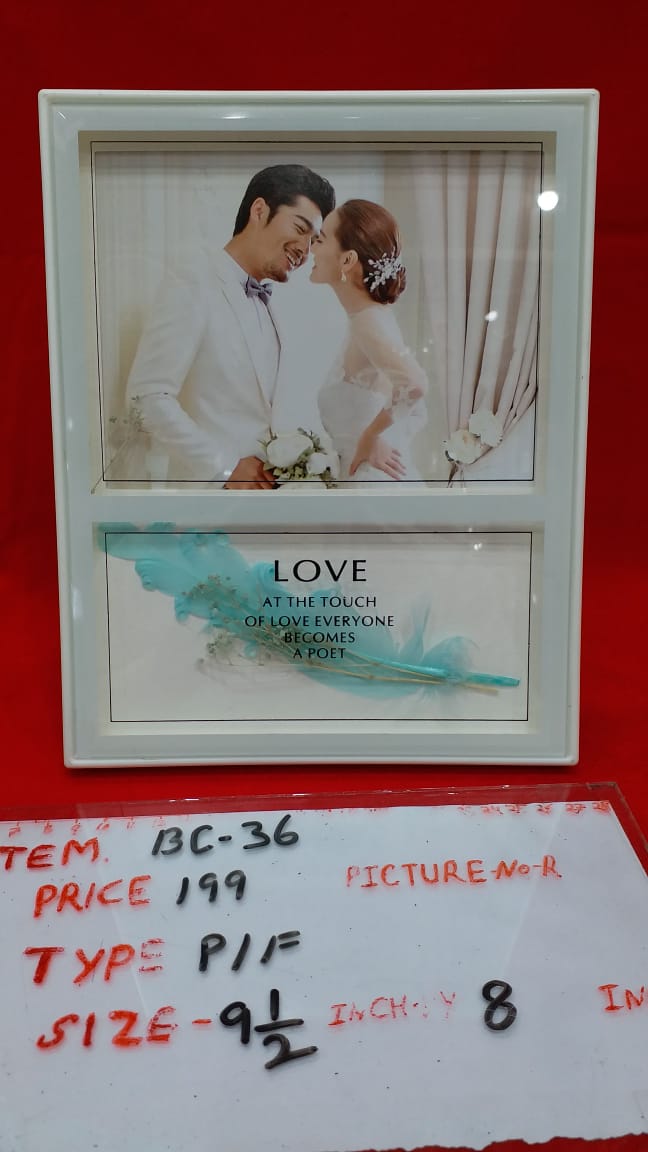 LOVE
AT THE TOUCH
OF LOVE EVERYONE
BECOMES
A POET
TEM. BC-36
PRICE 199 PICTURE-NO-R
TYPE P/F
SIZE-9 1/2 INCH BY 8 IN